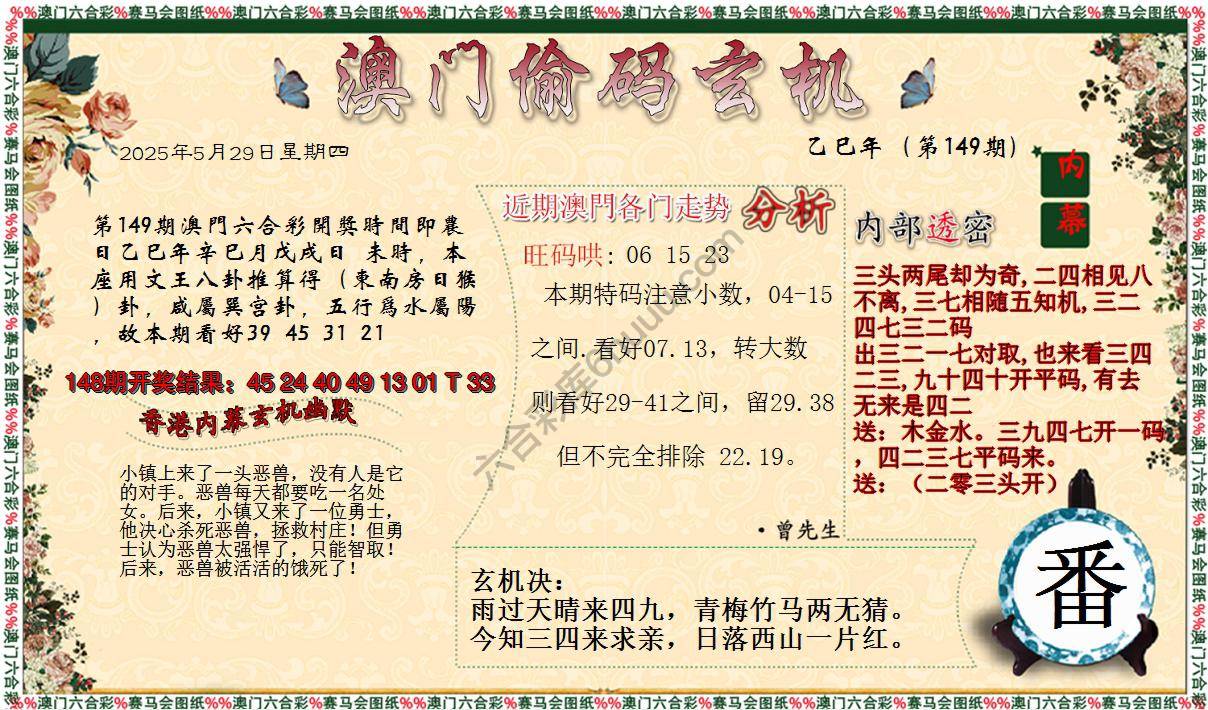 %%澳门六合彩%赛马会图纸%%澳门六合彩%赛马会图纸%%澳门六合彩%赛马会图纸%%澳门六合彩%赛马会图纸%%澳门六合彩%赛马会图纸%%澳门六合彩%赛马会图纸%%
澳门偷码玄机
2025年5月29日星期四
乙巳年（第149期）
第149期澳門六合彩開獎時間即農
日乙巳年辛巳月戊戌日 未時，本
座用文王八卦推算得（東南房日猴
）卦，咸屬巽宫卦，五行爲水屬陽
，故本期看好39 45 31 21
148期开奖结果：45 24 40 49 13 01 T 33
香港内幕玄机幽默
小镇上来了一头恶兽，没有人是它
的对手。恶兽每天都要吃一名处
女。后来，小镇又来了一位勇士，
他决心杀死恶兽，拯救村庄！但勇
士认为恶兽太强悍了，只能智取！
后来，恶兽被活活的饿死了！
近期澳門各门走势 分析
旺码哄: 06 15 23
本期特码注意小数，04-15
之间.看好07.13，转大数
则看好29-41之间，留29.38
但不完全排除 22.19。
·曾先生
玄机决：
雨过天晴来四九，青梅竹马两无猜。
今知三四来求亲，日落西山一片红。
内部透密
内幕
三头两尾却为奇,二四相见八
不离,三七相随五知机,三二
四七三二码
出三二一七对取,也来看三四
二三,九十四十开平码,有去
无来是四二
送：木金水。三九四七开一码
，四二三七平码来。
送：（二零三头开）
番